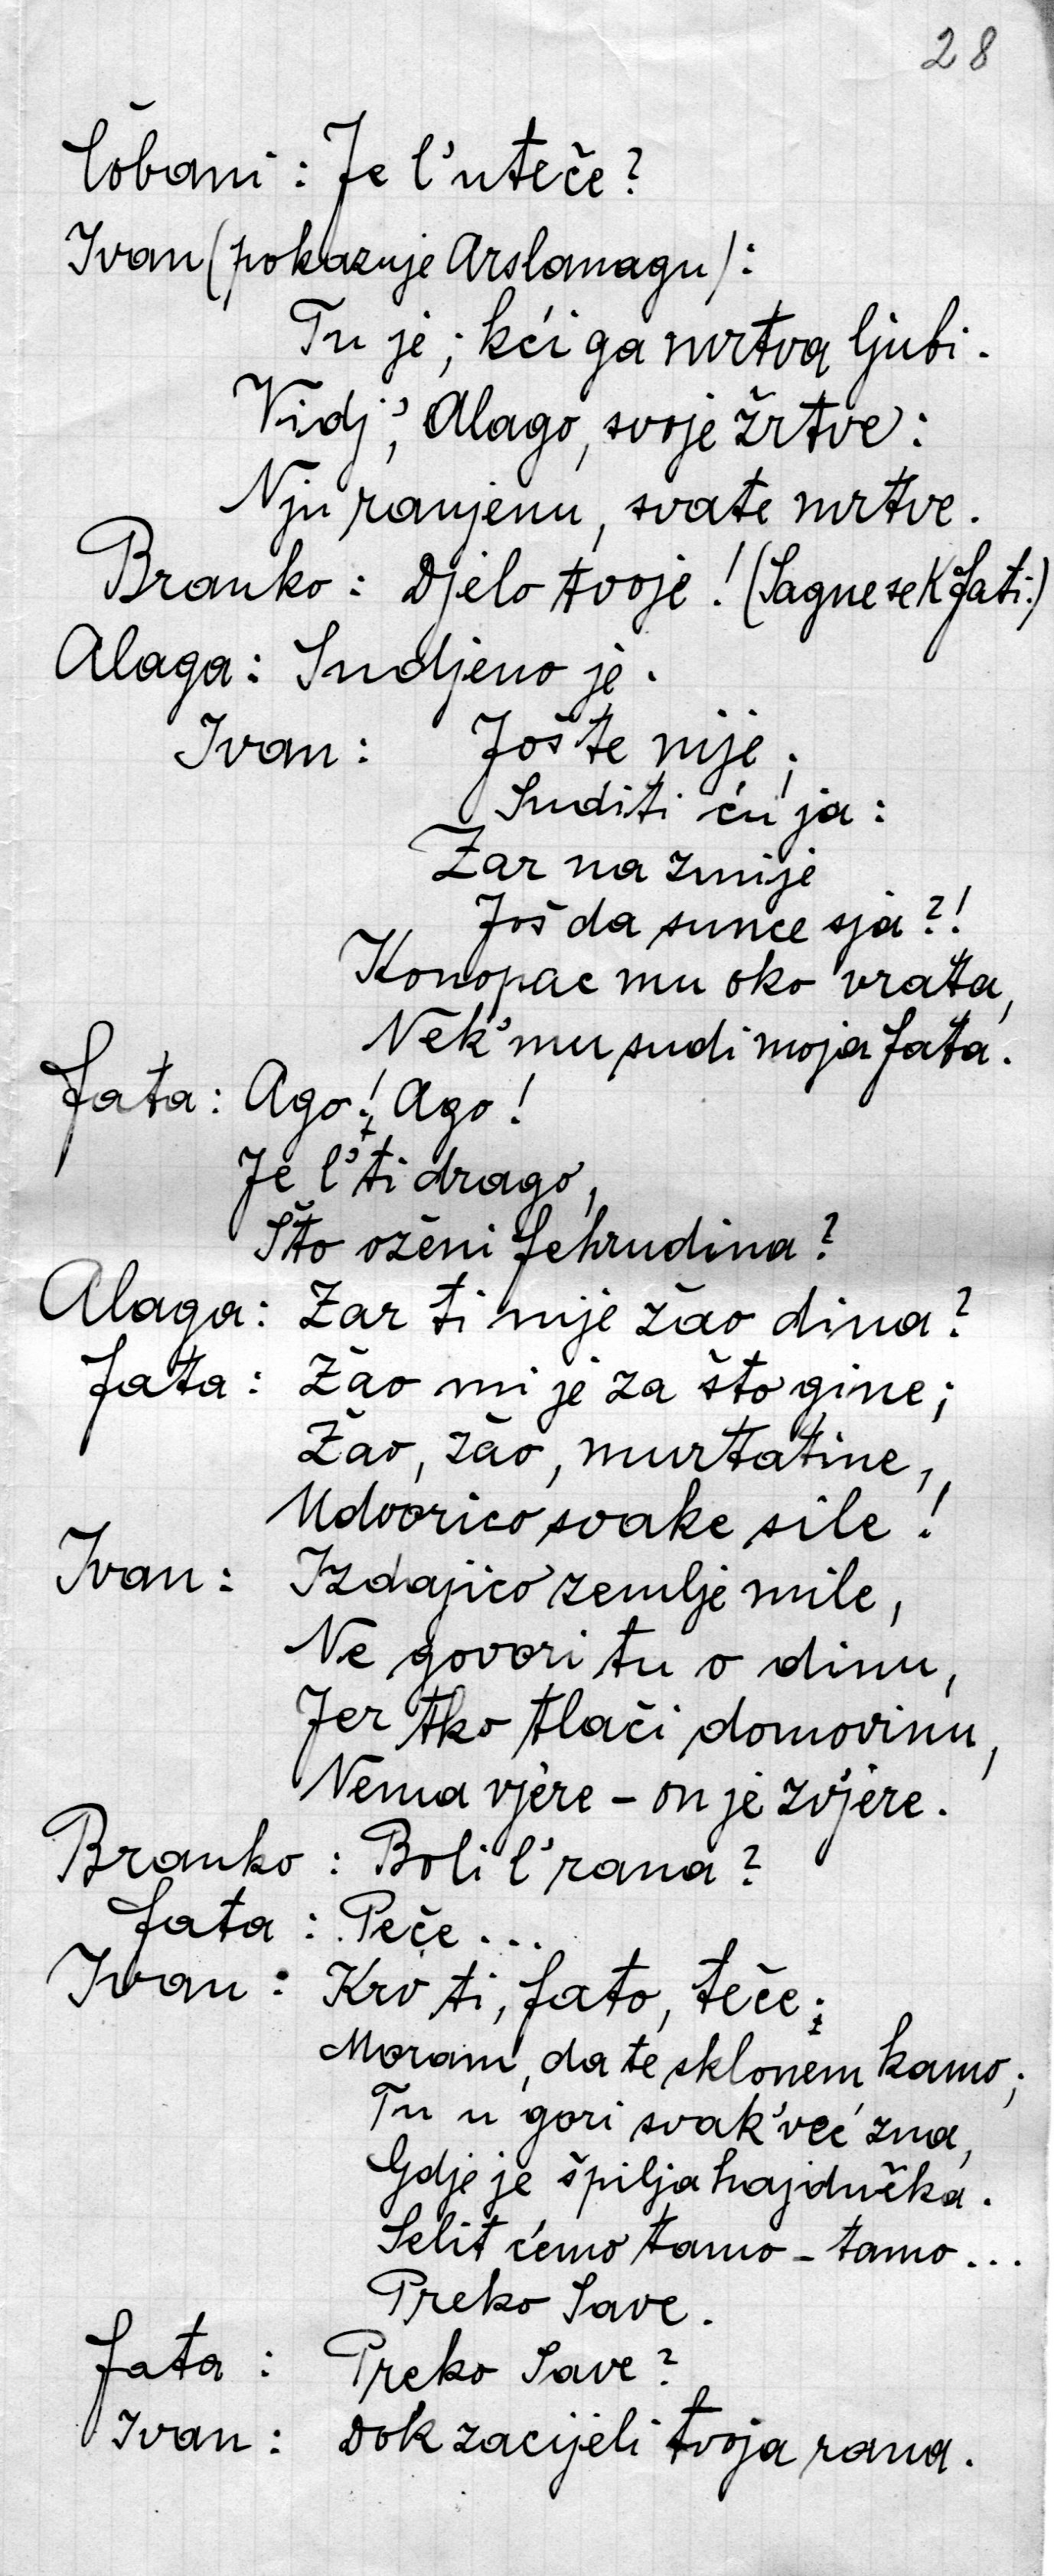 28
Čobani: Je l' uteče?
Ivan (pokazuje Arslanagu):
Tu je; kći ga mrtva ljubi.
Vidj', Alago, svoje žrtve:
Nju ranjenu, svate mrtve.
Branko: Djelo tvoje! (Sagne se k Fati:)
Alaga: Sudjeno je.
Ivan: Jošte nije;
Suditi ću ja:
Zar na zmije
Još da sunce sja?!
Konopac mu oko vrata,
Nek' mu sudi moja Fata.
Fata: Ago! Ago!
Je l' ti drago,
Što oženi Fehrudina?
Alaga: Zar ti nije žao dina?
Fata: Žao mi je za što gine;
Žao, žao, murtatine,
Udvorico svake sile!
Ivan: Izdajico zemlje mile,
Ne govori tu o dinu,
Jer tko tlači domovinu,
Nema vjere - on je zvjere.
Branko: Boli l' rana?
Fata: Peče...
Ivan: Krv ti, Fato, teče;
Moram, da te sklonem kamo;
Tu u gori svak' već zna,
Gdje je špilja hajdučka.
Selit ćemo tamo - tamo...
Preko Save.
Fata: Preko Save?
Ivan: Dok zacijeli tvoja rana.